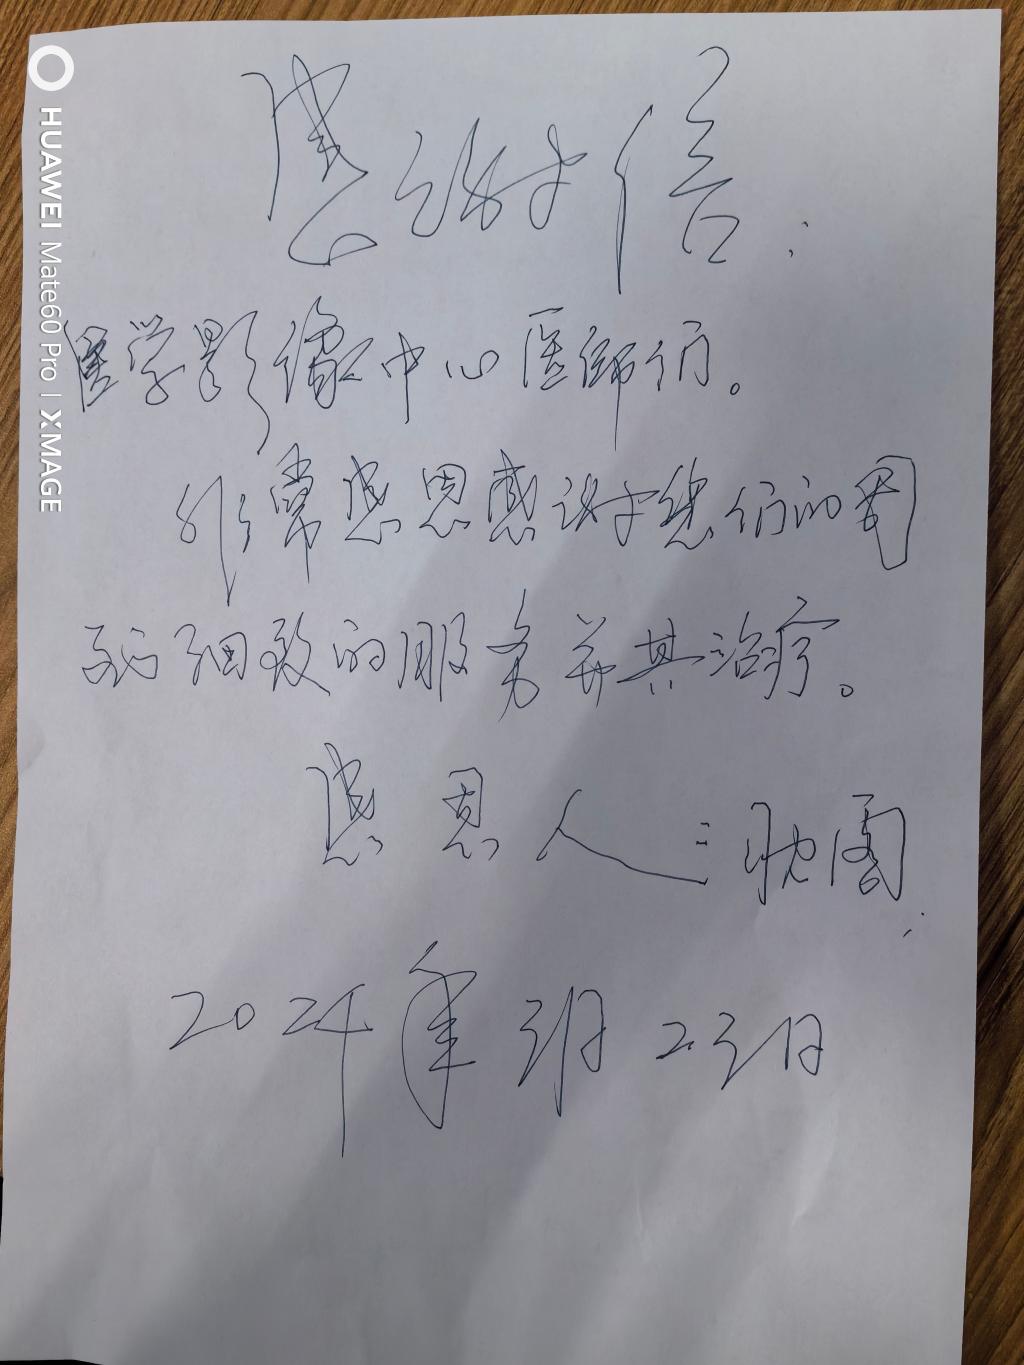 感谢信:
医学影像中心医师们。
非常感恩感谢您们的周
到细致的服务并其治疗。
感恩人:耿
2024年3月23日
HUAWEI Mate60 Pro | XMAGE